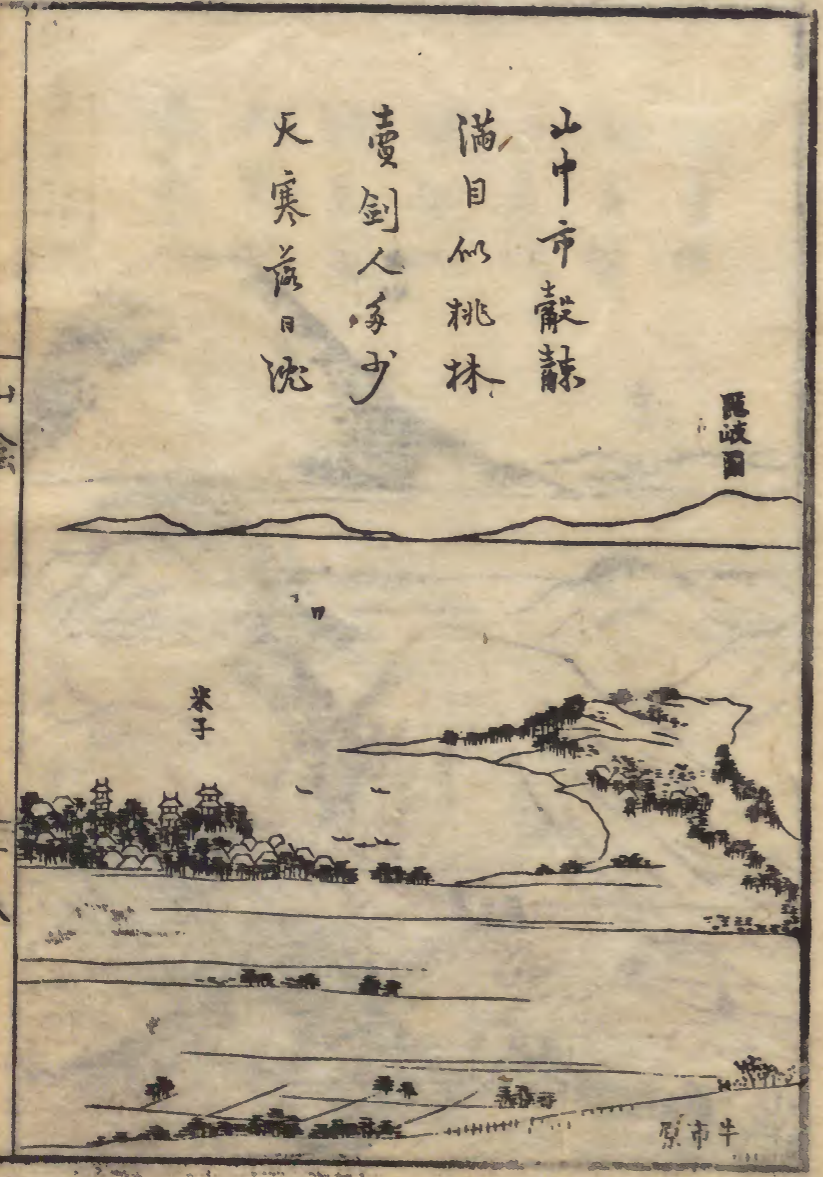 山中市觳觫
滿目似桃林
賣劍人多少
天寒落日沈
隠岐國
米子
牛市原